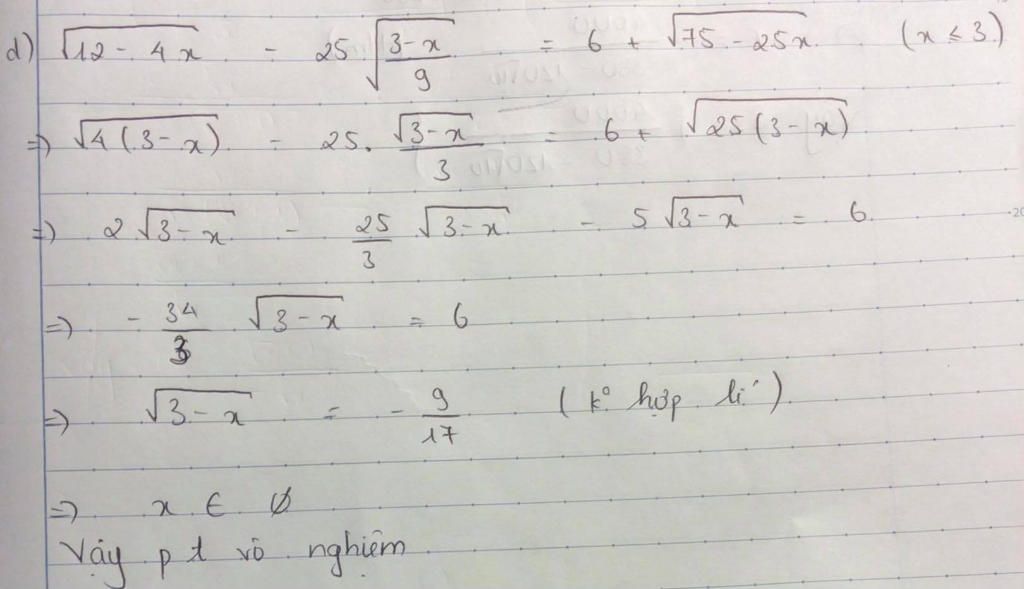 d) √(12 - 4x) - 25 √((3-x)/9) = 6 + √(75 - 25x) (x ≤ 3)
=> √(4(3-x)) - 25 . √(3-x)/3 = 6 + √(25(3-x))
=> 2 √(3-x) - 25/3 √(3-x) - 5 √(3-x) = 6
=> - 34/3 √(3-x) = 6
=> √(3-x) = - 9/17 (k° hợp lí)
=> x ∈ ∅
Vậy pt vô nghiệm